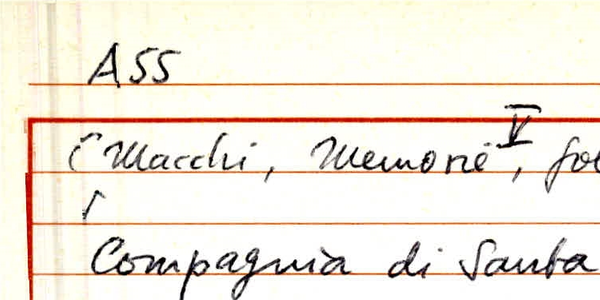 ASS
(Macchi, Memorie V, fol
Compagnia di Santa